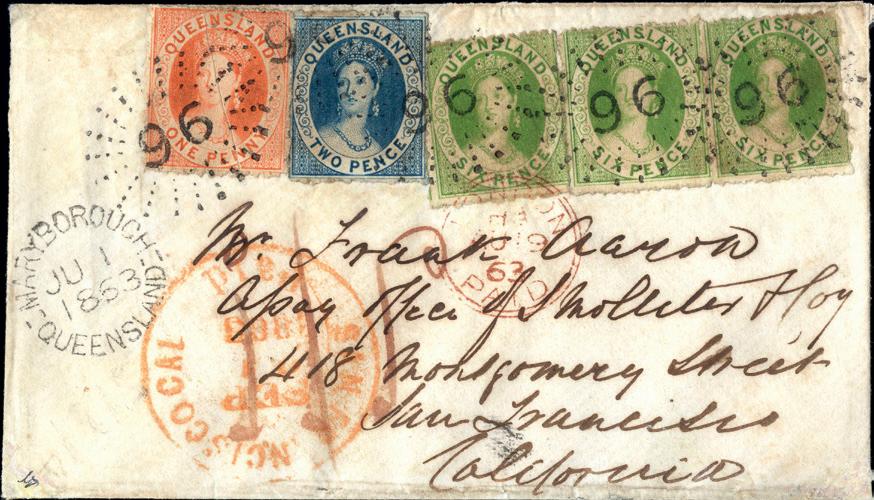 QUEENSLAND
ONE PENNY
QUEENSLAND
TWO PENCE
QUEENSLAND
SIX PENCE
QUEENSLAND
SIX PENCE
QUEENSLAND
SIX PENCE
96
96
96
96
96
MARYBOROUGH
JU 1
1863
QUEENSLAND
63
PAID
SEP
Mr. Frank Aaron
Office of
418 Montgomery Street
San Francisco
California